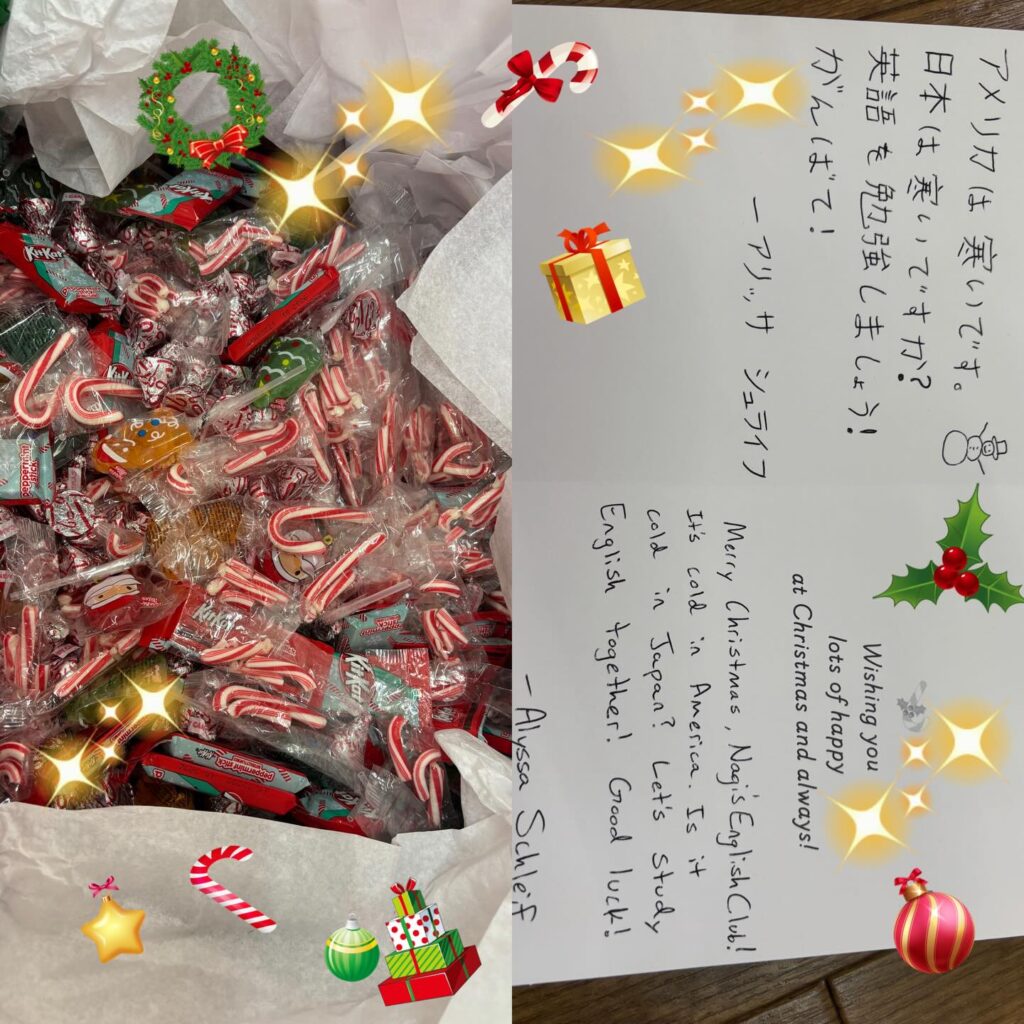 アメリカは 寒いです。
日本は寒いですか?
英語を勉強しましょう!
がんばて!
ーアリッサ シュライフ
Wishing you
lots of happy
at Christmas and always!
Merry Christmas, Nagi's English Club!
It's cold in America. Is it
cold in Japan? Let's study
English together! Good luck!
-Alyssa Schleif
KitKat
peppermint stick
KitKat
KitKat
peppermint stick